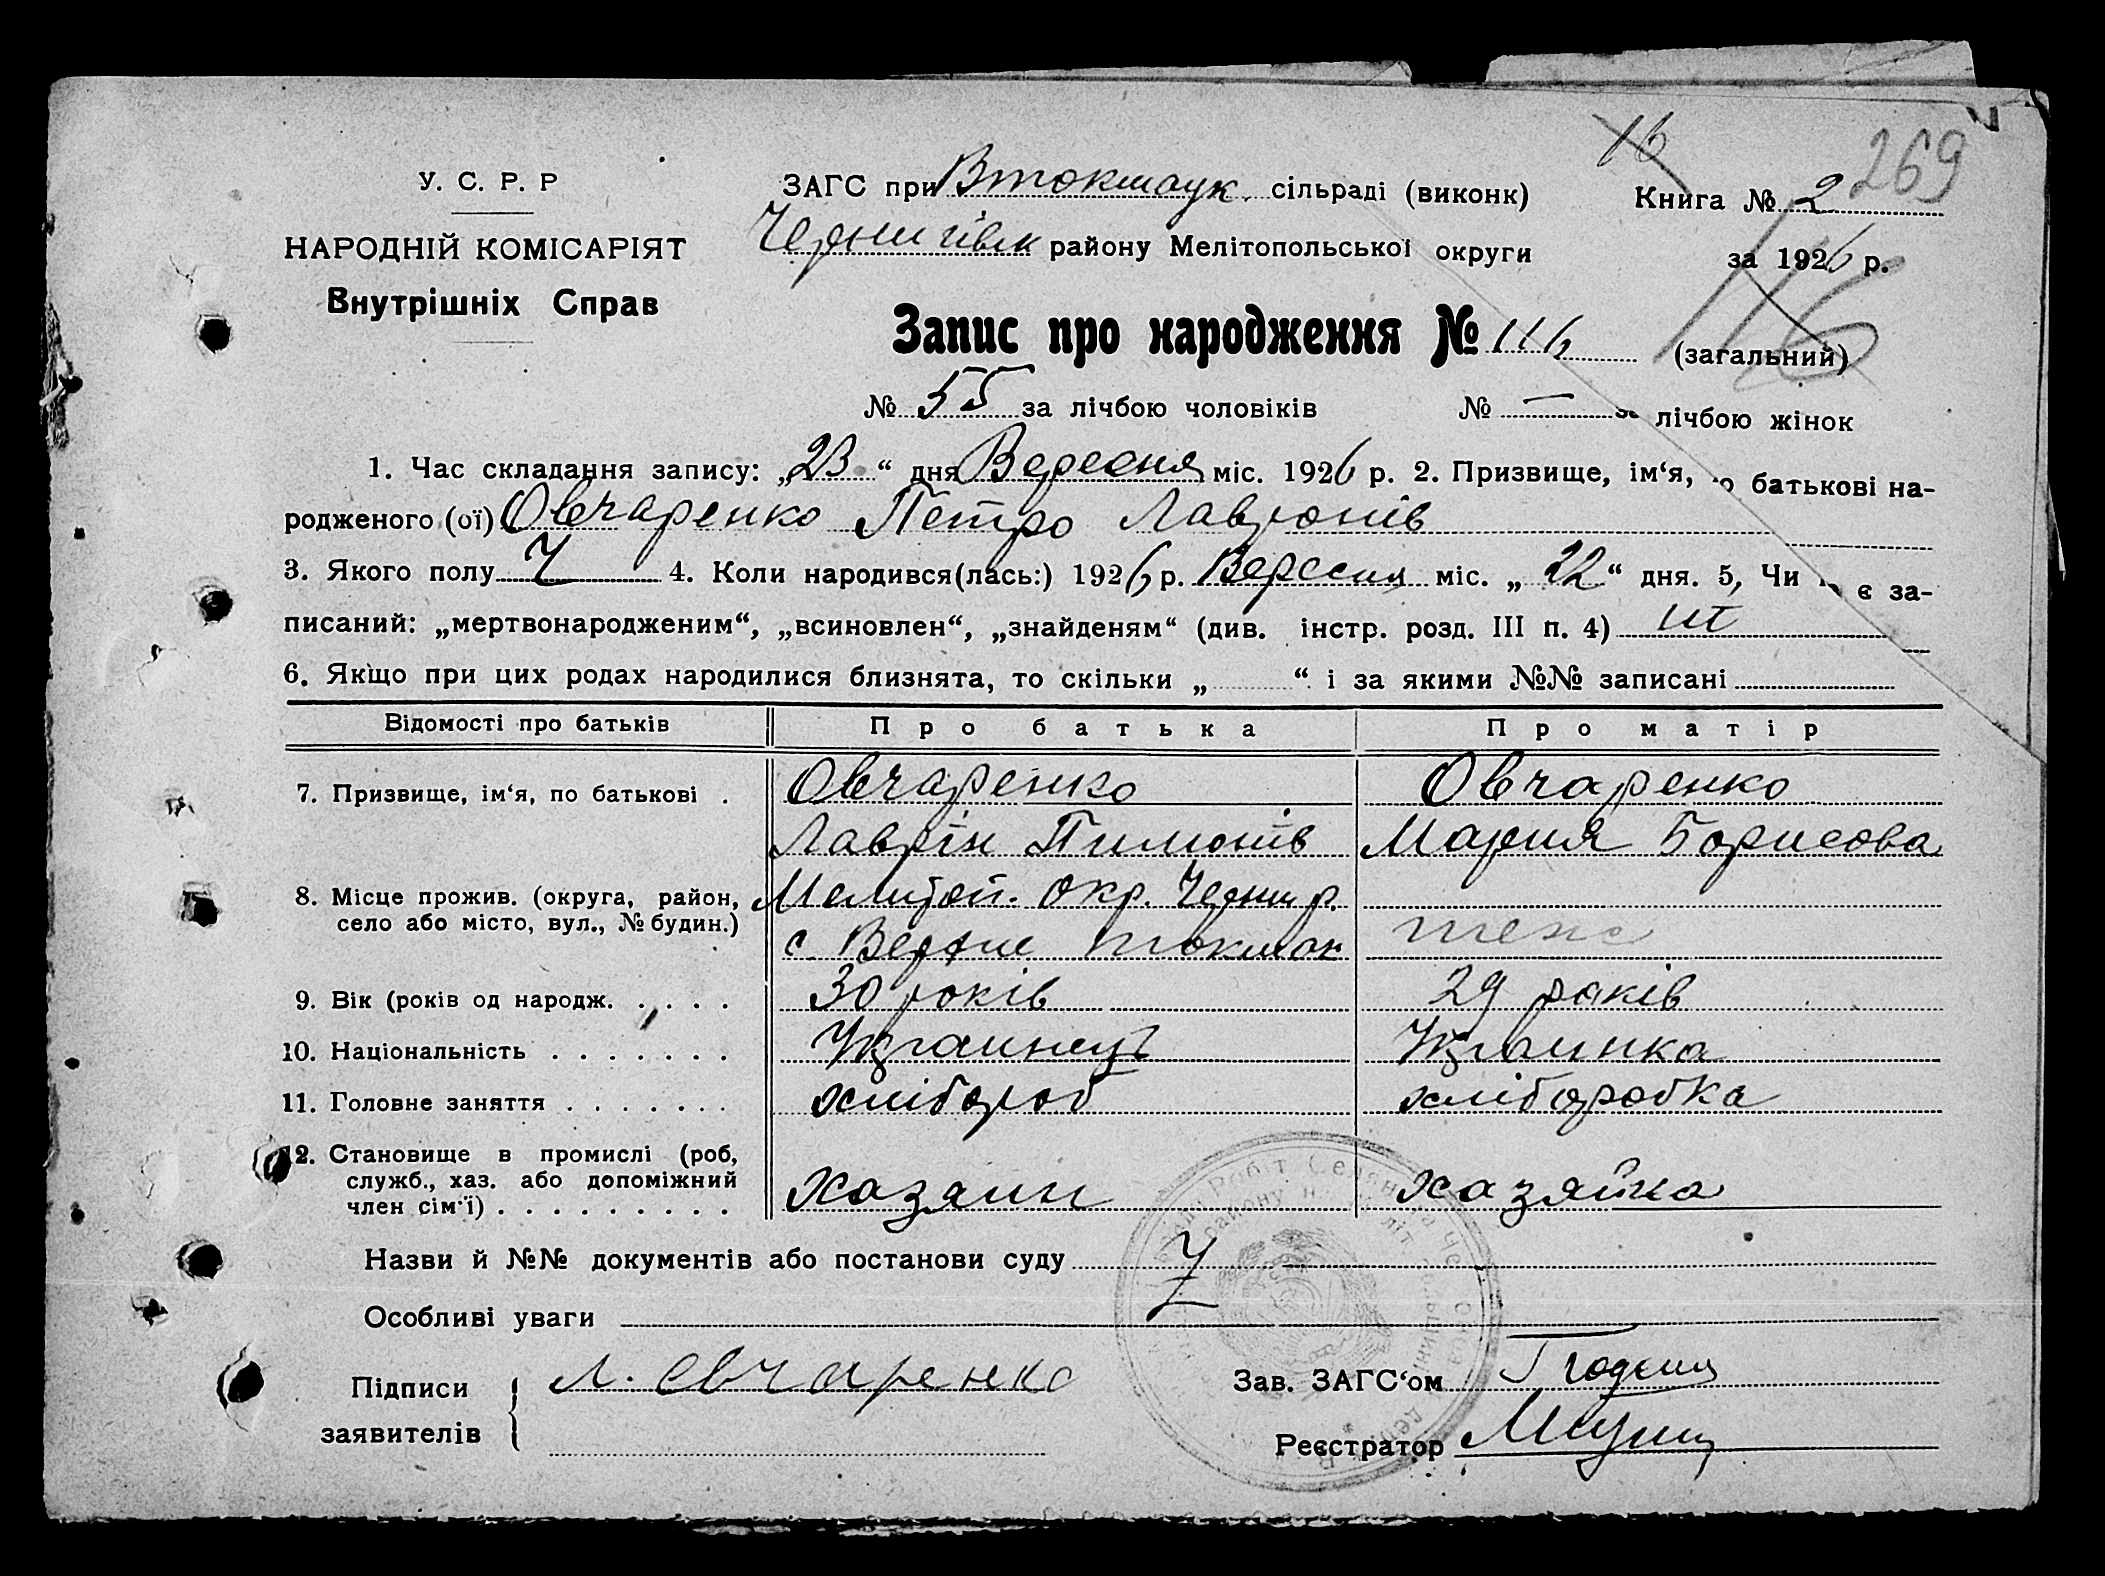 16 269
У. С. Р. Р
НАРОДНІЙ КОМІСАРІЯТ
Внутрішніх Справ
ЗАГС при Втокмаук. сільраді (виконк)
Чернигівск району Мелітопольської округи
Книга № 2
за 1926 р.
116
Запис про народження № 116 (загальний)
№ 55 за лічбою чоловіків № — лічбою жінок
1. Час складання запису: „23“ дня Вересня міс. 1926 р. 2. Призвище, ім‘я, по батькові на-
родженого (ої) Овчаренко Петро Лавронів
3. Якого полу Ч 4. Коли народився(лась:) 1926 р. Вересня міс. „22“ дня. 5, Чи є за-
писаний: „мертвонародженим“, „всиновлен“, „знайденям“ (див. інстр. розд. III п. 4)
6. Якщо при цих родах народилися близнята, то скільки „ “ і за якими №№ записані
Відомості про батьків Про батька Про матір
7. Призвище, ім‘я, по батькові . Овчаренко Овчаренко
Лаврін Пимонів Мария Борисова
8. Місце прожив. (округа, район, Мелитоп. окр. Черниг р.
село або місто, вул., № будин.) с. Верхне Токмак теж
9. Вік (років од народж. . . . . 30 років 29 років
10. Національність . . . . . . . Украинець Украинка
11. Головне заняття . . . . . . . хлібороб хліборобка
12. Становище в промислі (роб,
служб., хаз. або допоміжний Хазяин хазяйка
член сім‘ї) . . . . . . . . .
Назви й №№ документів або постанови суду
Особливі уваги
Підписи Л. Овчаренко Зав. ЗАГС‘ом
заявителів Реєстратор